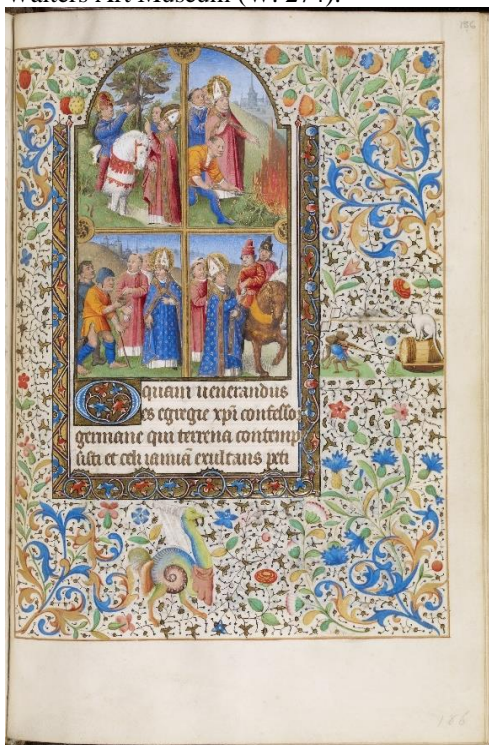 Walters Art Museum (W. 274).
186
quam uenerandus
es egregie xpi confessor
germane qui terrena contemp
sisti et celi ianuā exultans peti
186